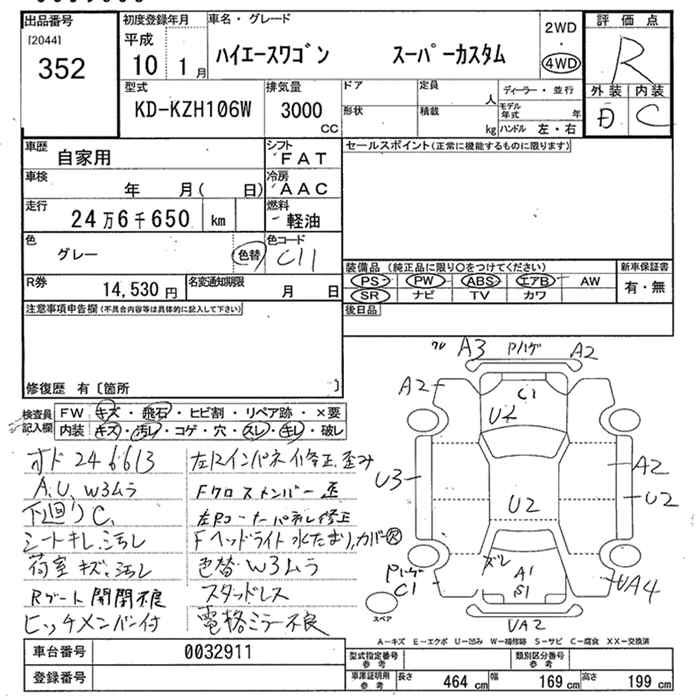 出品番号 初度登録年月 車名・グレード 2WD 評価点
[2044] 平成 ハイエースワゴン スーパーカスタム ・ R
352 10 1月 4WD 外装 内装
型式 排気量 ドア 定員 人 ディーラー・並行 C
KD-KZH106W 3000 CC 形状 積載 kg モデル年式 年
ハンドル 左・右
車歴 自家用 シフト FAT セールスポイント(正常に機能するものに限ります)
車検 年 月( 日) 冷房 AAC
走行 24万6千650 km 燃料 軽油
色 グレー 色替 色コード C11
装備品(純正品に限り○をつけてください) 新車保証書
R券 14,530円 名変通知期限 月 日 PS PW ABS エアB AW 有・無
SR ナビ TV カワ
注意事項申告欄(不具合内容等は具体的に記入して下さい) 後日品
修復歴 有〔箇所 〕
検査員記入欄 FW キズ・飛石・ヒビ割・リペア跡・×要
内装 キズ・汚レ・コゲ・穴・スレ・キレ・破レ
オド246613 左右インパネ修正歪み
A,U,W3ムラ Fクロスメンバー歪
下廻りC, 左Rコーナーパネル修正
シートキレ,汚レ Fヘッドライト水たまり,カバー欠
荷室キズ,汚レ 色替W3ムラ
Rゲート開閉不良 スタッドレス
ヒッチメンバー付 電格ミラー不良
A3 Pハゲ A2
A2 C1
U2
U3 A2
U2 U2
ズレ
Pハゲ A1 UA4
C1 S1
スペア UA2
A-キズ E-エクボ U-凹み W-補修跡 S-サビ C-腐食 XX-交換済
車台番号 0032911 型式指定番号 参考 類別区分番号 参考
登録番号 車庫証明用 参考 長さ 464cm 幅 169cm 高さ 199cm